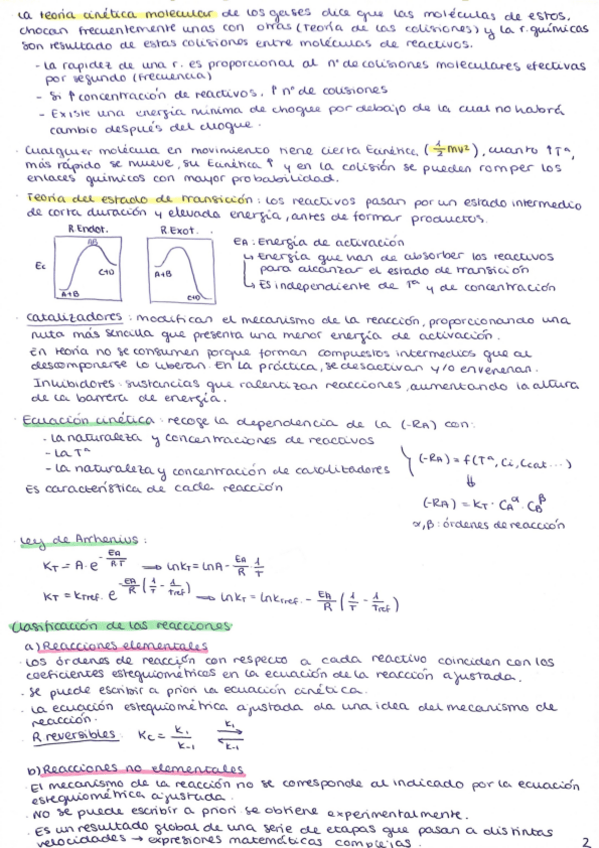 La teoría cinética molecular de los gases dice que las moléculas de estos,
chocan frecuentemente unas con otras (Teoría de las colisiones) y la r. químicas
son resultado de estas colisiones entre moléculas de reactivos.
- La rapidez de una r. es proporcional al nº de colisiones moleculares efectivas
por segundo (frecuencia)
- Si ↑ concentración de reactivos, ↑ nº de colisiones
- Existe una energía mínima de choque por debajo de la cual no habrá
cambio después del choque.
· Cualquier molécula en movimiento tiene cierta Ecinética, (1/2 mv²), cuanto ↑Tª,
más rápido se mueve, su Ecinética ↑ y en la colisión se pueden romper los
enlaces químicos con mayor probabilidad.
· Teoría del estado de transición: los reactivos pasan por un estado intermedio
de corta duración y elevada energía, antes de formar productos.
R Endot. R Exot.
EA: Energía de activación
↳ Energía que han de absorber los reactivos
para alcanzar el estado de transición
↳ Es independiente de Tª y de concentración
AB
Ec
C+D
A+B
A+B
C+D
· Catalizadores: modifican el mecanismo de la reacción, proporcionando una
ruta más sencilla que presenta una menor energía de activación.
En teoría no se consumen porque forman compuestos intermedios que al
descomponerse lo liberan. En la práctica, se desactivan y/o envenenan.
Inhibidores: sustancias que ralentizan reacciones, aumentando la altura
de la barrera de energía.
· Ecuación cinética: recoge la dependencia de la (-RA) con:
- La naturaleza y concentraciones de reactivos
- La Tª
- La naturaleza y concentración de catalizadores
Es característica de cada reacción
(-RA) = f(Tª, Ci, Ccat...)
⇓
(-RA) = KT · CA^α · CB^β
α, β: órdenes de reacción
· Ley de Arrhenius:
KT = A·e^(-EA/RT) → lnKT = lnA - EA/R · 1/T
KT = KTref. e^(-EA/R (1/T - 1/Tref)) → lnKT = lnKTref. - EA/R (1/T - 1/Tref)
Clasificación de las reacciones
a) Reacciones elementales
· Los órdenes de reacción con respecto a cada reactivo coinciden con los
coeficientes estequiométricos en la ecuación de la reacción ajustada.
· Se puede escribir a priori la ecuación cinética.
· La ecuación estequiométrica ajustada da una idea del mecanismo de
reacción.
· R reversibles: KC = K1/K-1 K1 ⇌ K-1
b) Reacciones no elementales
· El mecanismo de la reacción no se corresponde al indicado por la ecuación
estequiométrica ajustada.
· No se puede escribir a priori se obtiene experimentalmente.
· Es un resultado global de una serie de etapas que pasan a distintas
velocidades → expresiones matemáticas complejas.
2